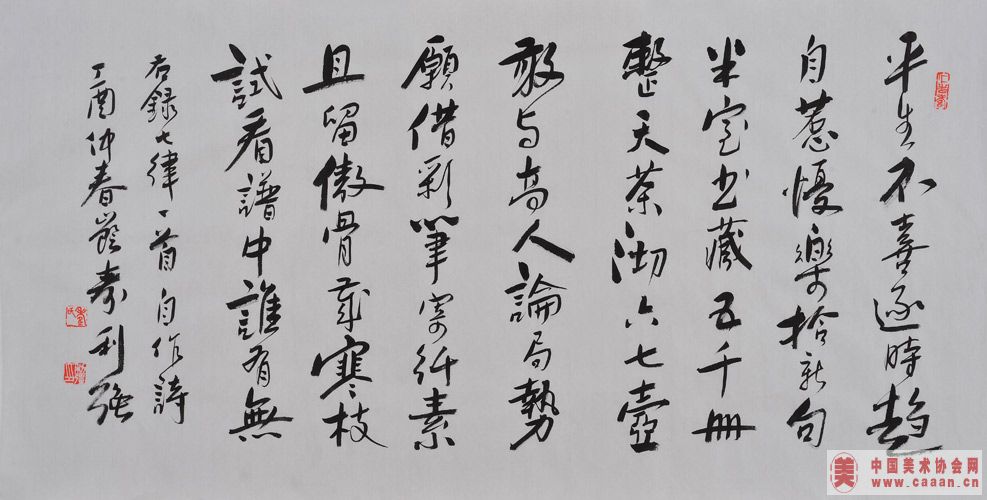 平生不喜逐時趨
自惹懮樂拾新句
半室书藏五千冊
整天茶沏六七壺
敢与高人論局勢
願借彩筆寄素
且留傲骨寒枝
試看譜中誰有無
右録七律一首自作詩
丁酉仲春利强
美 中国美术协会网
www.caaan.cn